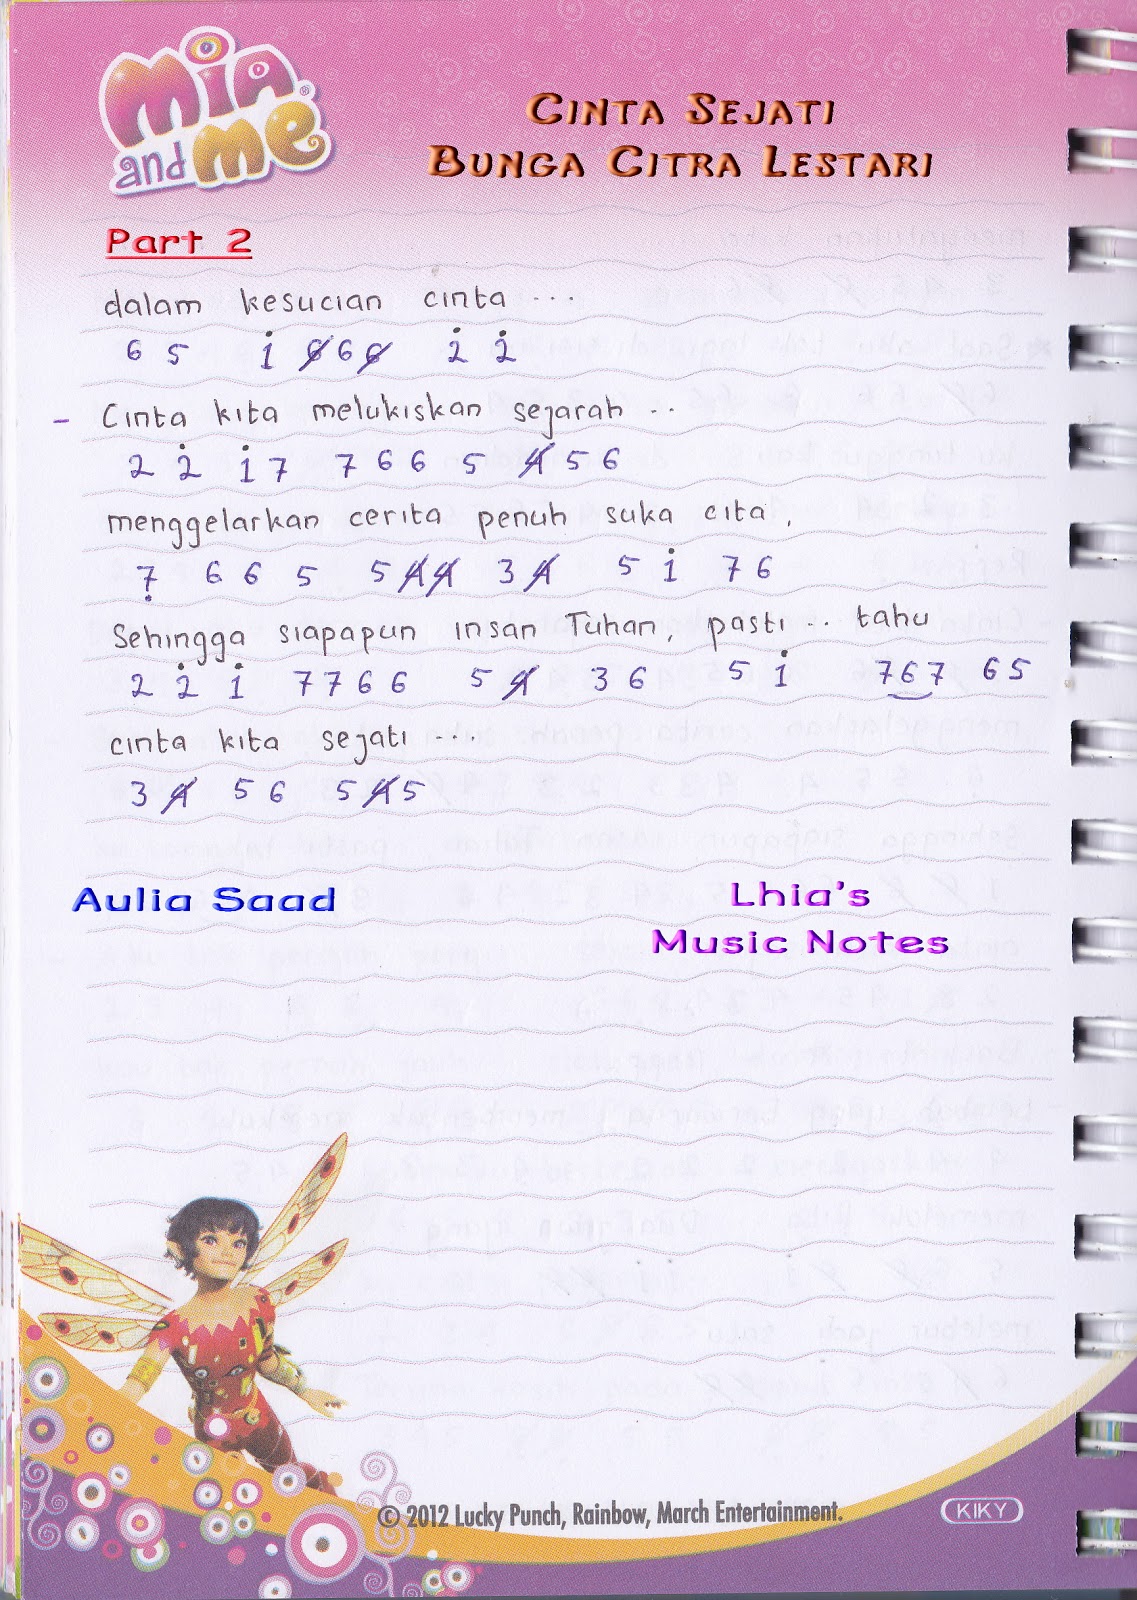 Mia
and me
®
Cinta Sejati
Bunga Citra Lestari
Part 2
dalam kesucian cinta ...
6 5 i̇ 6̸ 6 6̸ 2̇ 2̇
- Cinta kita melukiskan sejarah ..
2 2̇ i̇ 7 7 6 6 5 4̸ 5 6
menggelarkan cerita penuh suka cita,
7̣ 6 6 5 5 4̸ 4̸ 3 4̸ 5 i̇ 7 6
Sehingga siapapun insan Tuhan, pasti .. tahu
2 2̇ i̇ 7 7 6 6 5 4̸ 3 6 5 i̇ 767 6 5
cinta kita sejati ...
3 4̸ 5 6 5 4̸ 5
Aulia Saad
Lhia's
Music Notes
© 2012 Lucky Punch, Rainbow, March Entertainment.
KIKY